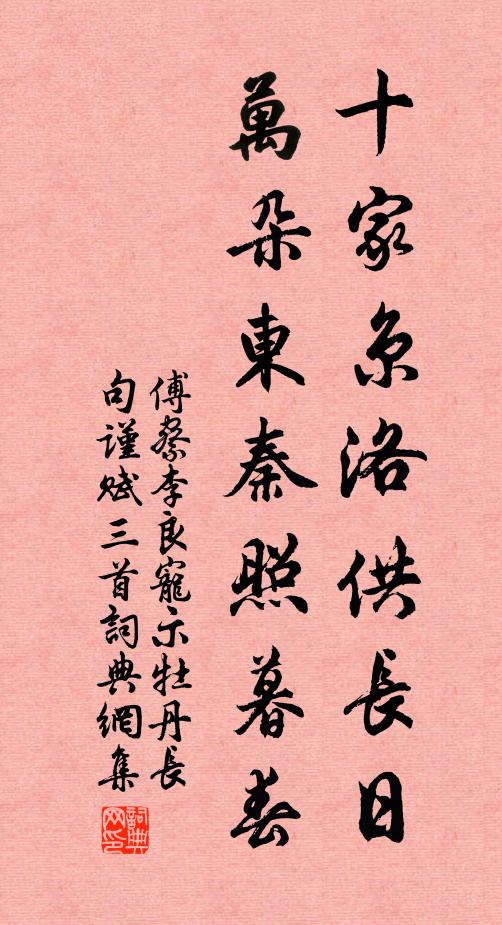 十家京洛供長日
萬朵東秦照暮春
傅察李良寵示牡丹長
句謹賦三首詞典網集
詞典网印